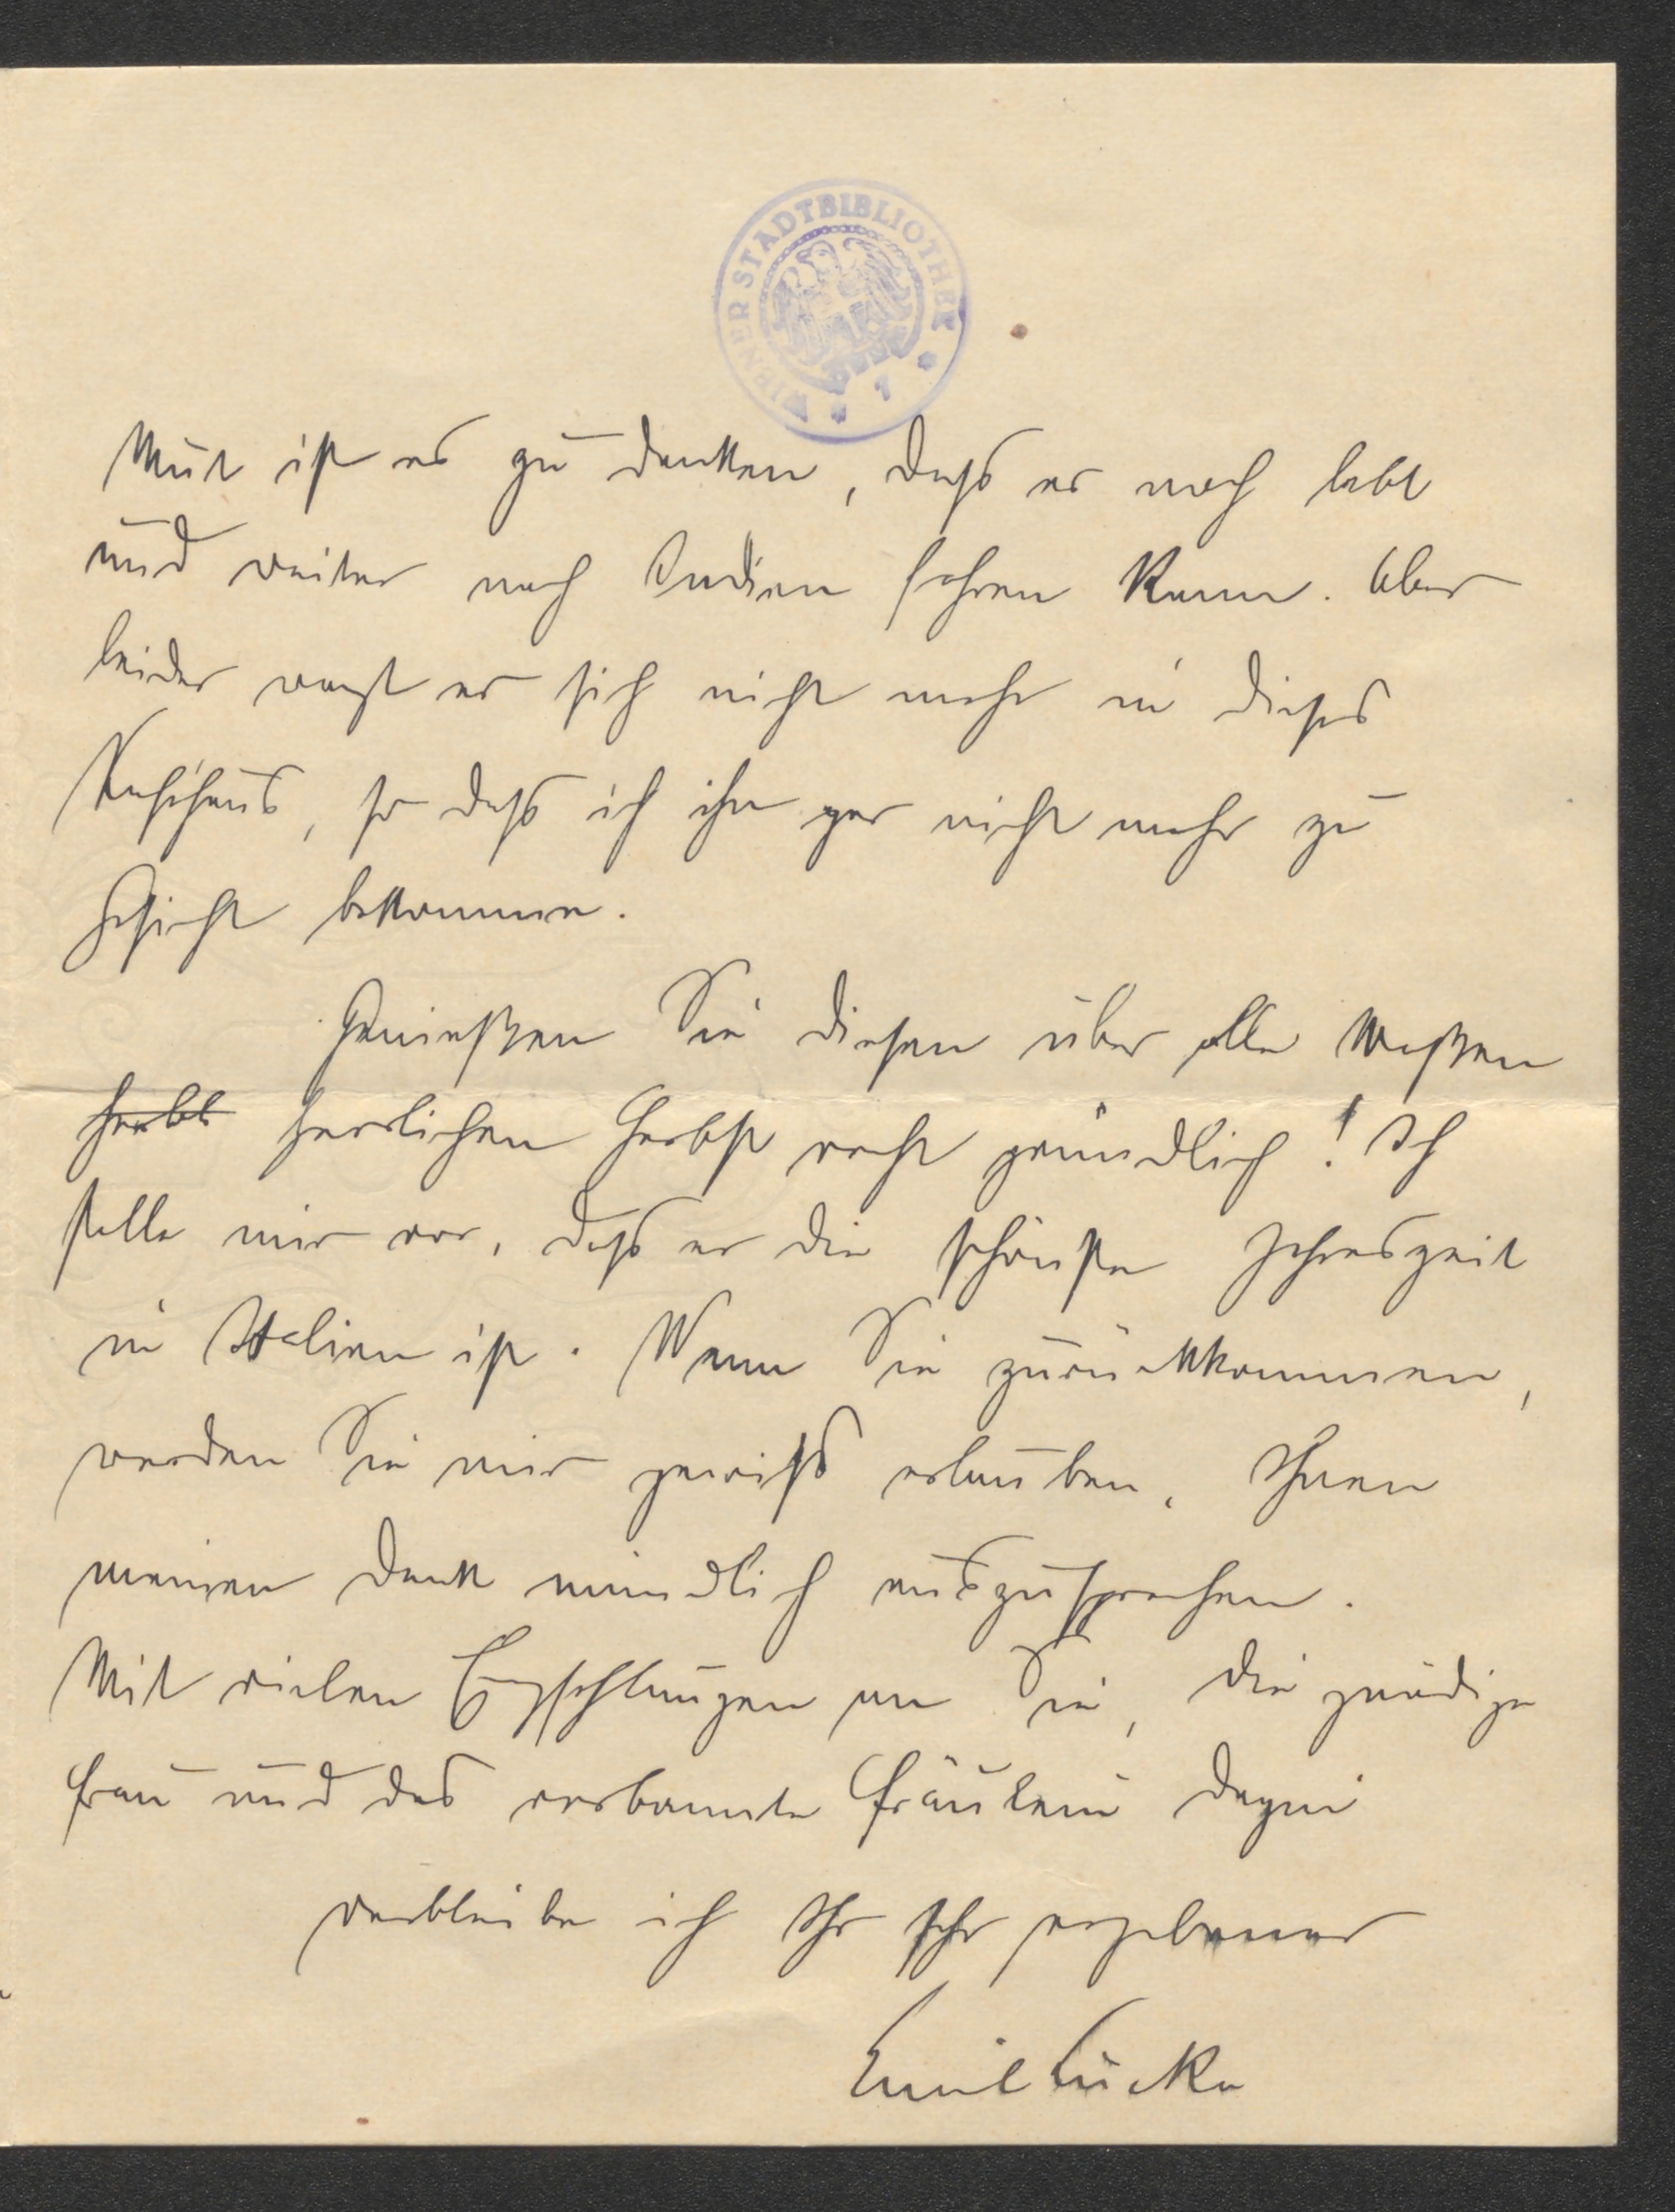 WIENER STADTBIBLIOTHEK
Mut ist es zu denken, daß er noch lebt
und weiter nach Indien fahren kann. Aber
leider wagt er sich nicht mehr in dieses
so daß ich ihn gar nicht mehr zu
Gesicht bekomme.
Genießen Sie diesen über alle Maßen
herbl herrlichen Herbst recht gründlich! Ich
stelle mir vor, daß er die schönste Jahreszeit
in Italien ist. Wenn Sie zurückkommen,
werden Sie mir gewiß erlauben, Ihnen
meinen Dank mündlich auszusprechen.
Mit vielen Empfehlungen an Sie, die gnädige
Frau und das verbannte Fräulein Dagni
verbleibe ich Ihr sehr ergebener
Emil Lucka